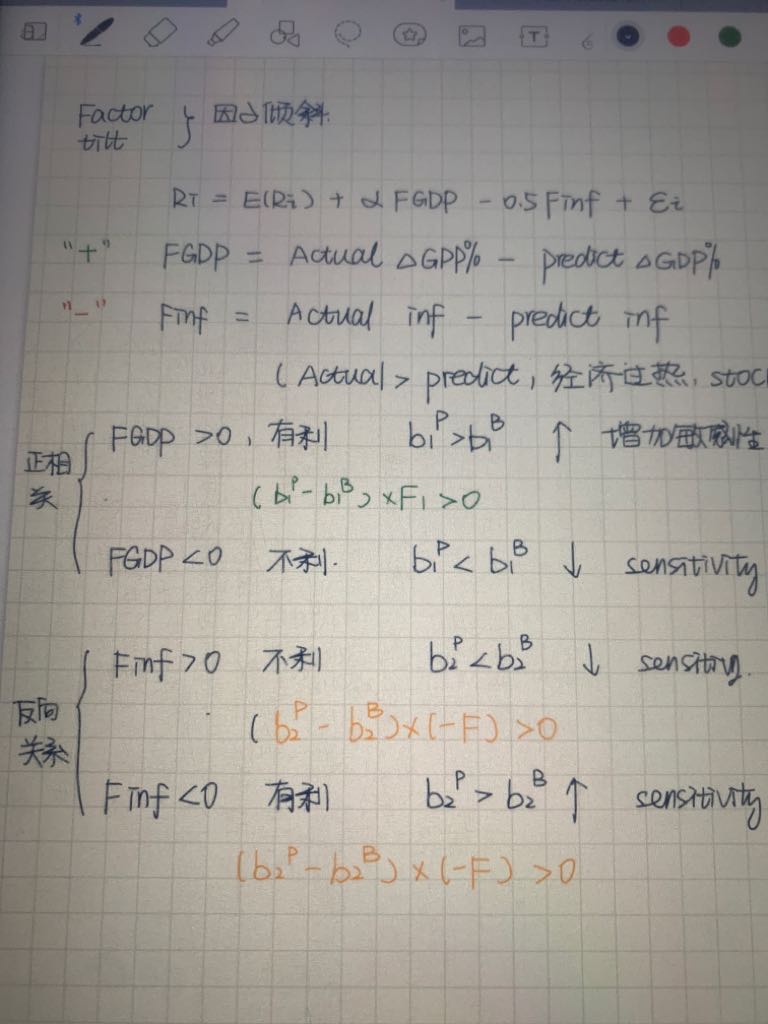 Factor
tilt } 因子倾斜
Ri = E(Ri) + α FGDP - 0.5 Finf + εi
"+" FGDP = Actual △GPP% - predict △GDP%
"-" Finf = Actual inf - predict inf
(Actual > predict, 经济过热, stoc
正相关
FGDP >0, 有利 b₁ᴾ>b₁ᴮ ↑ 增加敏感性
(b₁ᴾ-b₁ᴮ)×F₁>0
FGDP<0 不利. b₁ᴾ< b₁ᴮ ↓ sensitivity
反向关系
Finf>0 不利 b₂ᴾ<b₂ᴮ ↓
(b₂ᴾ - b₂ᴮ)×(-F) >0
Finf<0 有利 b₂ᴾ > b₂ᴮ ↑ sensitivity
(b₂ᴾ-b₂ᴮ)×(-F) >0